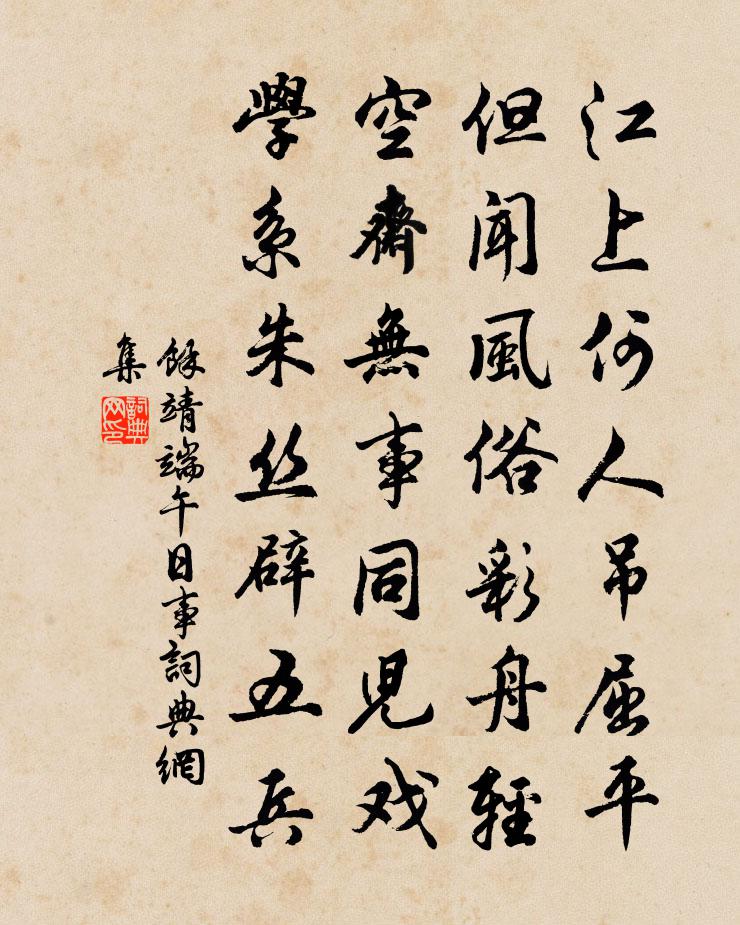 江上何人吊屈平
但聞風俗彩舟輕
空齋無事同児戏
學系朱丝辟五兵
餘靖端午日事詞典網
集
詞典
网印